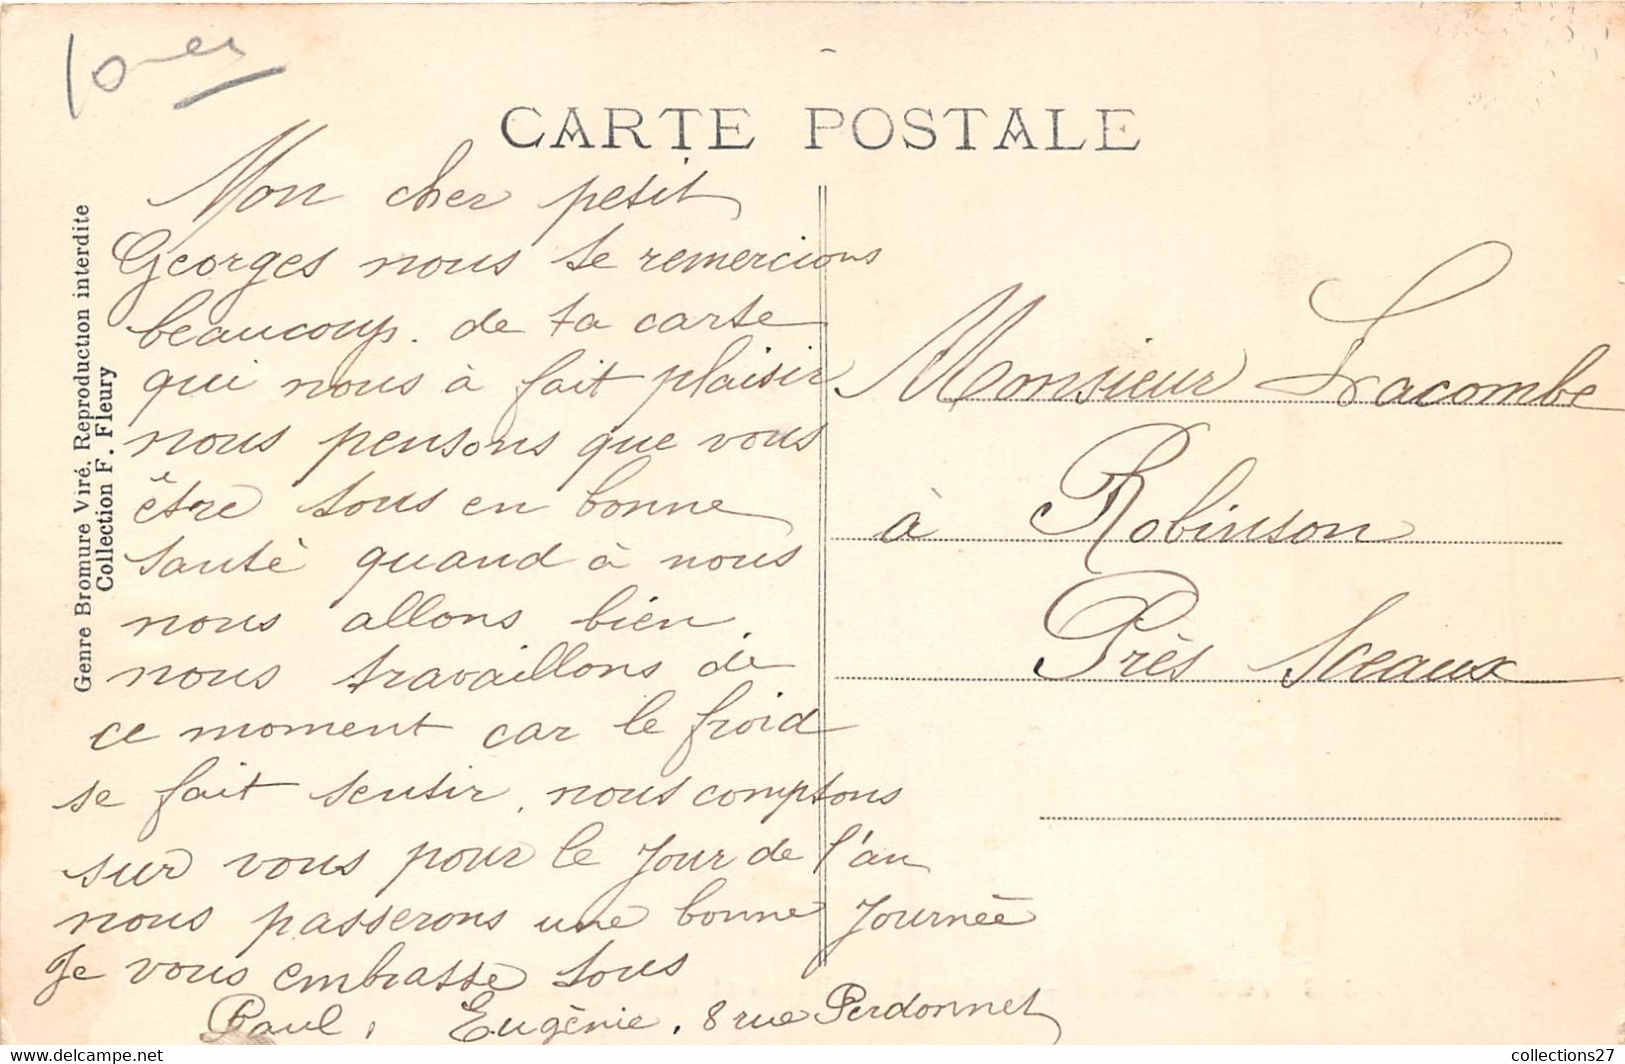 CARTE POSTALE
Genre Bromure Viré. Reproduction interdite
Collection F. Fleury
Mon cher petit
Georges nous te remercions
beaucoup. de ta carte
qui nous à fait plaisir
nous pensons que vous
être tous en bonne
santè quand à nous
nous allons bien.
nous travaillons de
ce moment car le froid
se fait sentir. nous comptons
sur vous pour le Jour de l'an
nous passerons une bonne Journèe
Je vous embrasse tous
Paul, Eugènie. 8 rue Perdonnet
Monsieur Lacombe
à Robinson
Près Sceaux
collections27